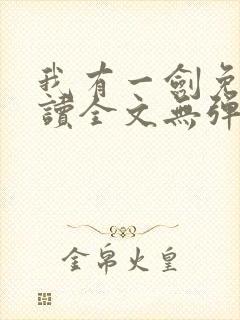 我有一劍免
讀全文無彈
金帛火皇